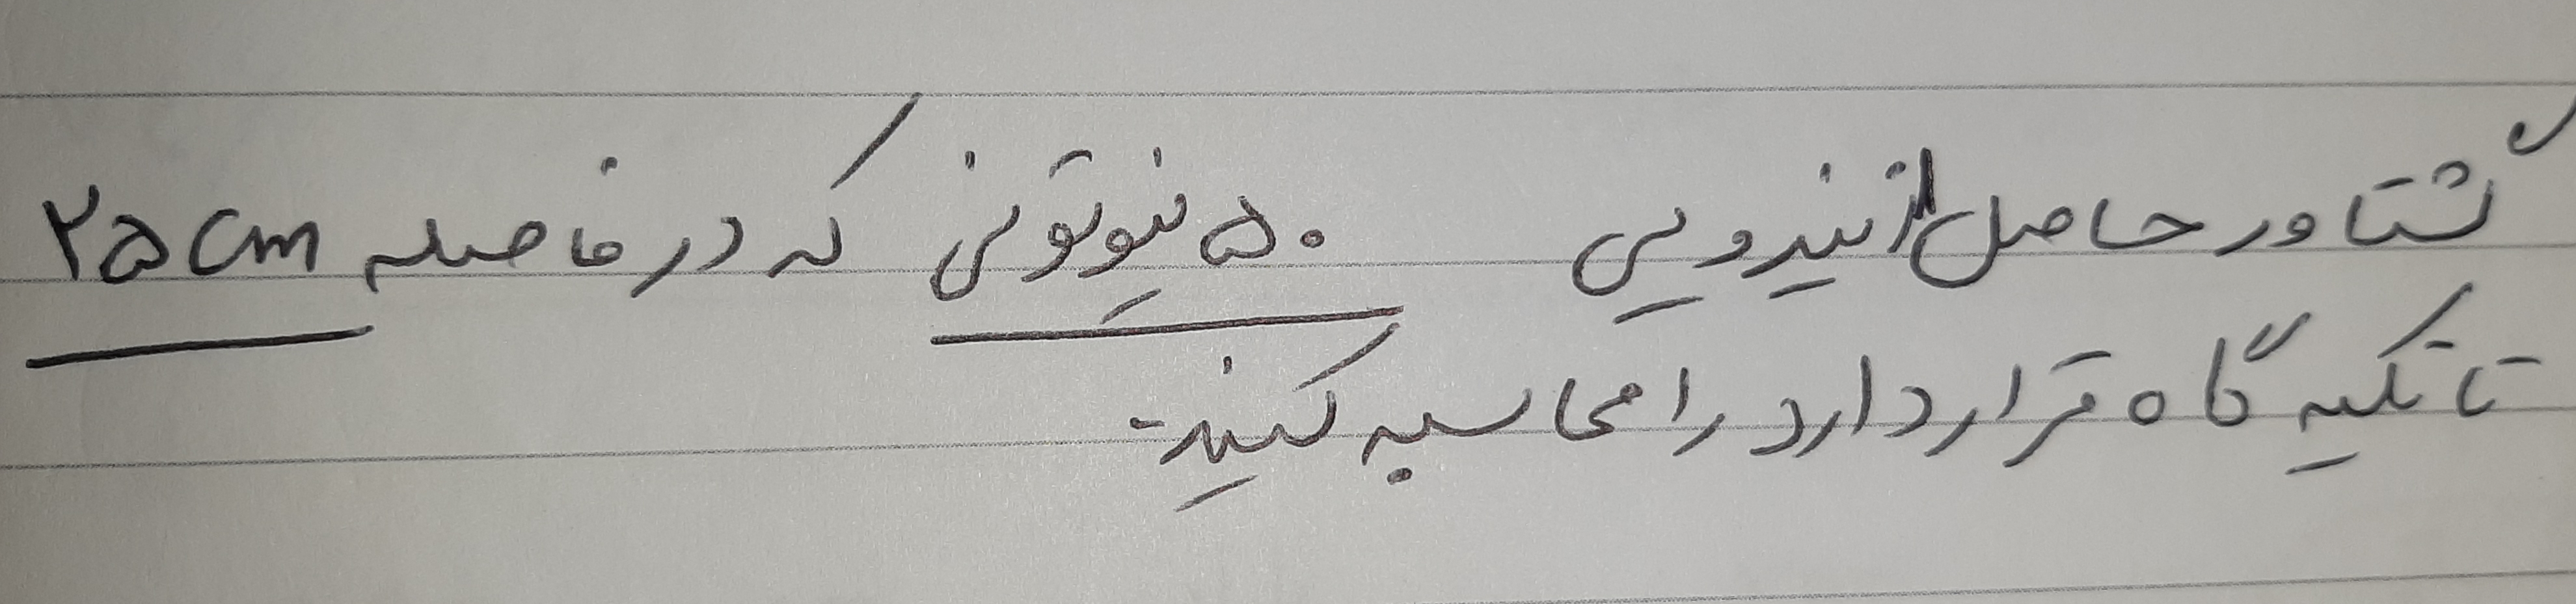 گشتاور حاصل از نیرویی ۵۰ نیوتونی که در فاصله ۲۵ cm
تا تکیه گاه قرار دارد را محاسبه کنید.